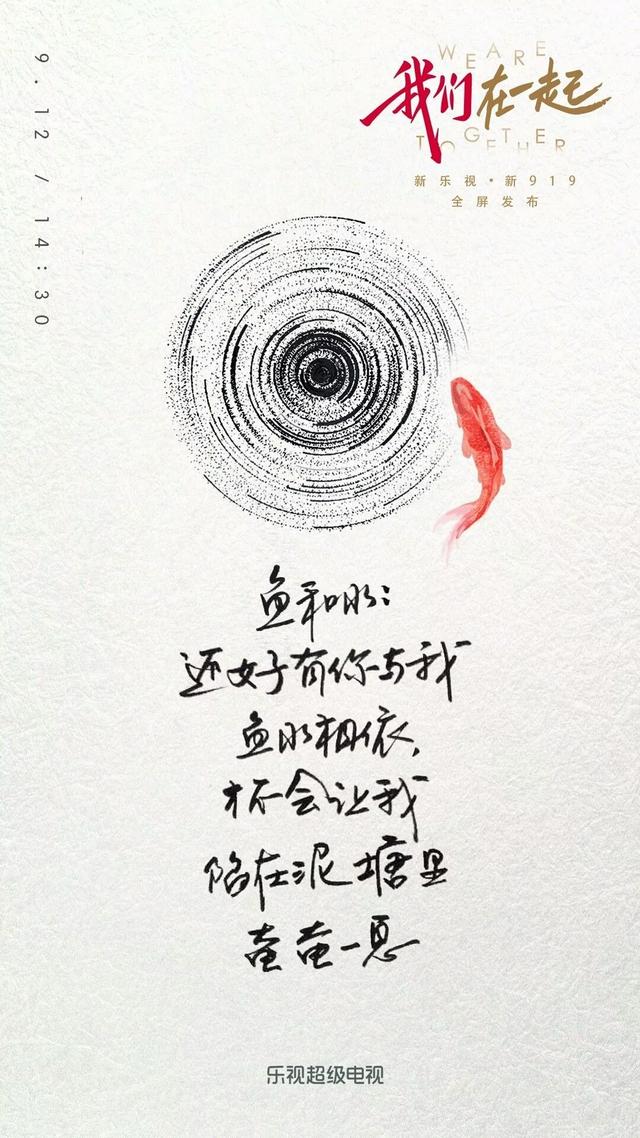 9.12/14:30
WE ARE
我们在一起
TOGETHER
新乐视·新919
全屏发布
鱼和水：
还好有你与我
鱼水相依，
才不会让我
陷在泥塘里
奄奄一息
乐视超级电视